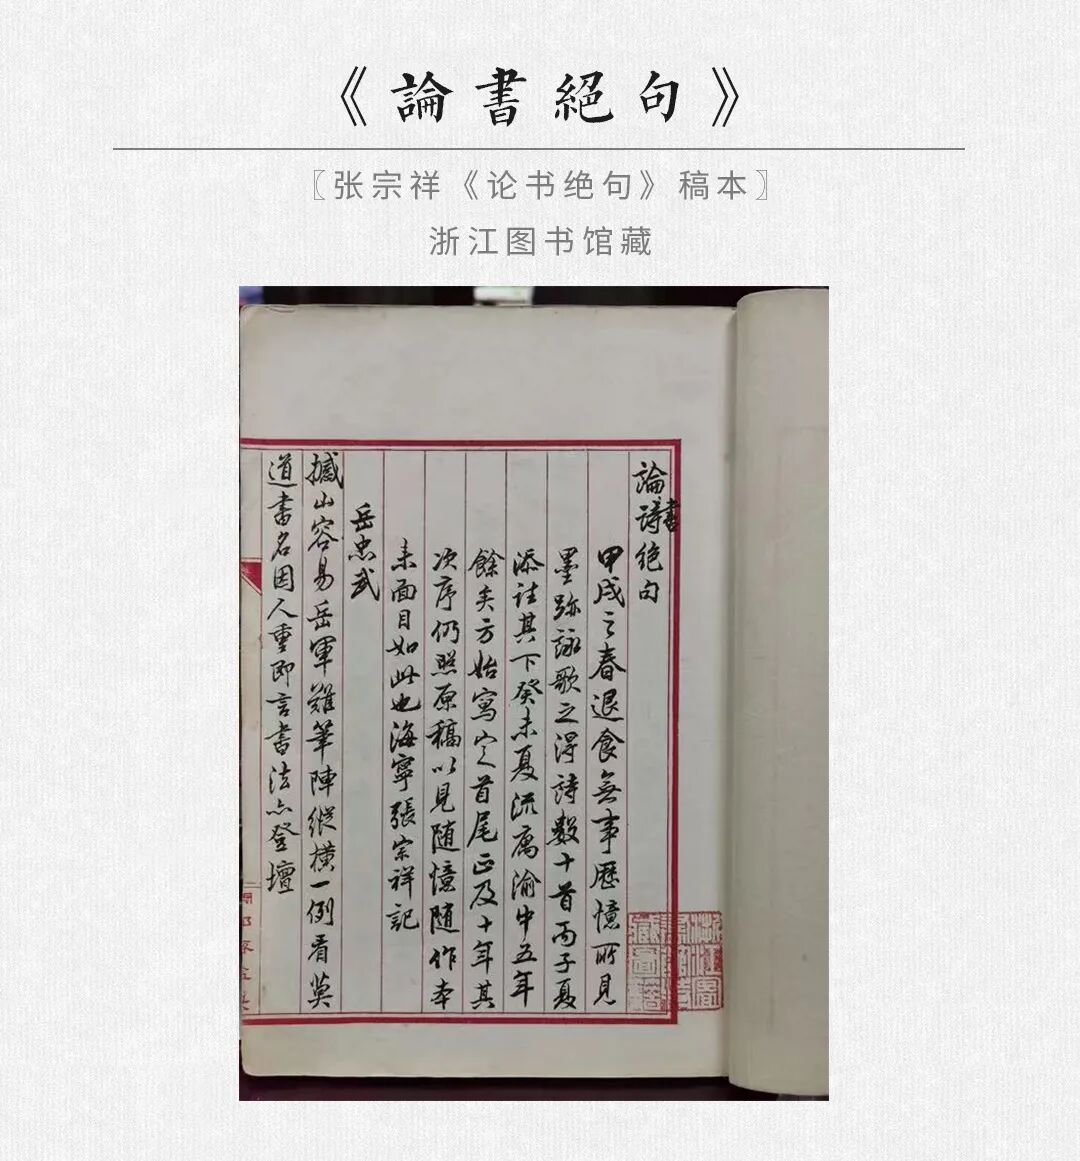 《論書絕句》
〖张宗祥《论书绝句》稿本〗
浙江图书馆藏
論詩書絕句
甲戌之春退食無事歷憶所見
墨跡詠歌之得詩數十首丙子夏
添註其下癸未夏流寓渝中五年
餘矣方始寫定首尾正及十年其
次序仍照原稿以見随憶随作本
来面目如此也海寧張宗祥記
岳忠武
撼山容易岳軍難筆陣縱橫一例看莫
道書名因人重即言書法亦登壇